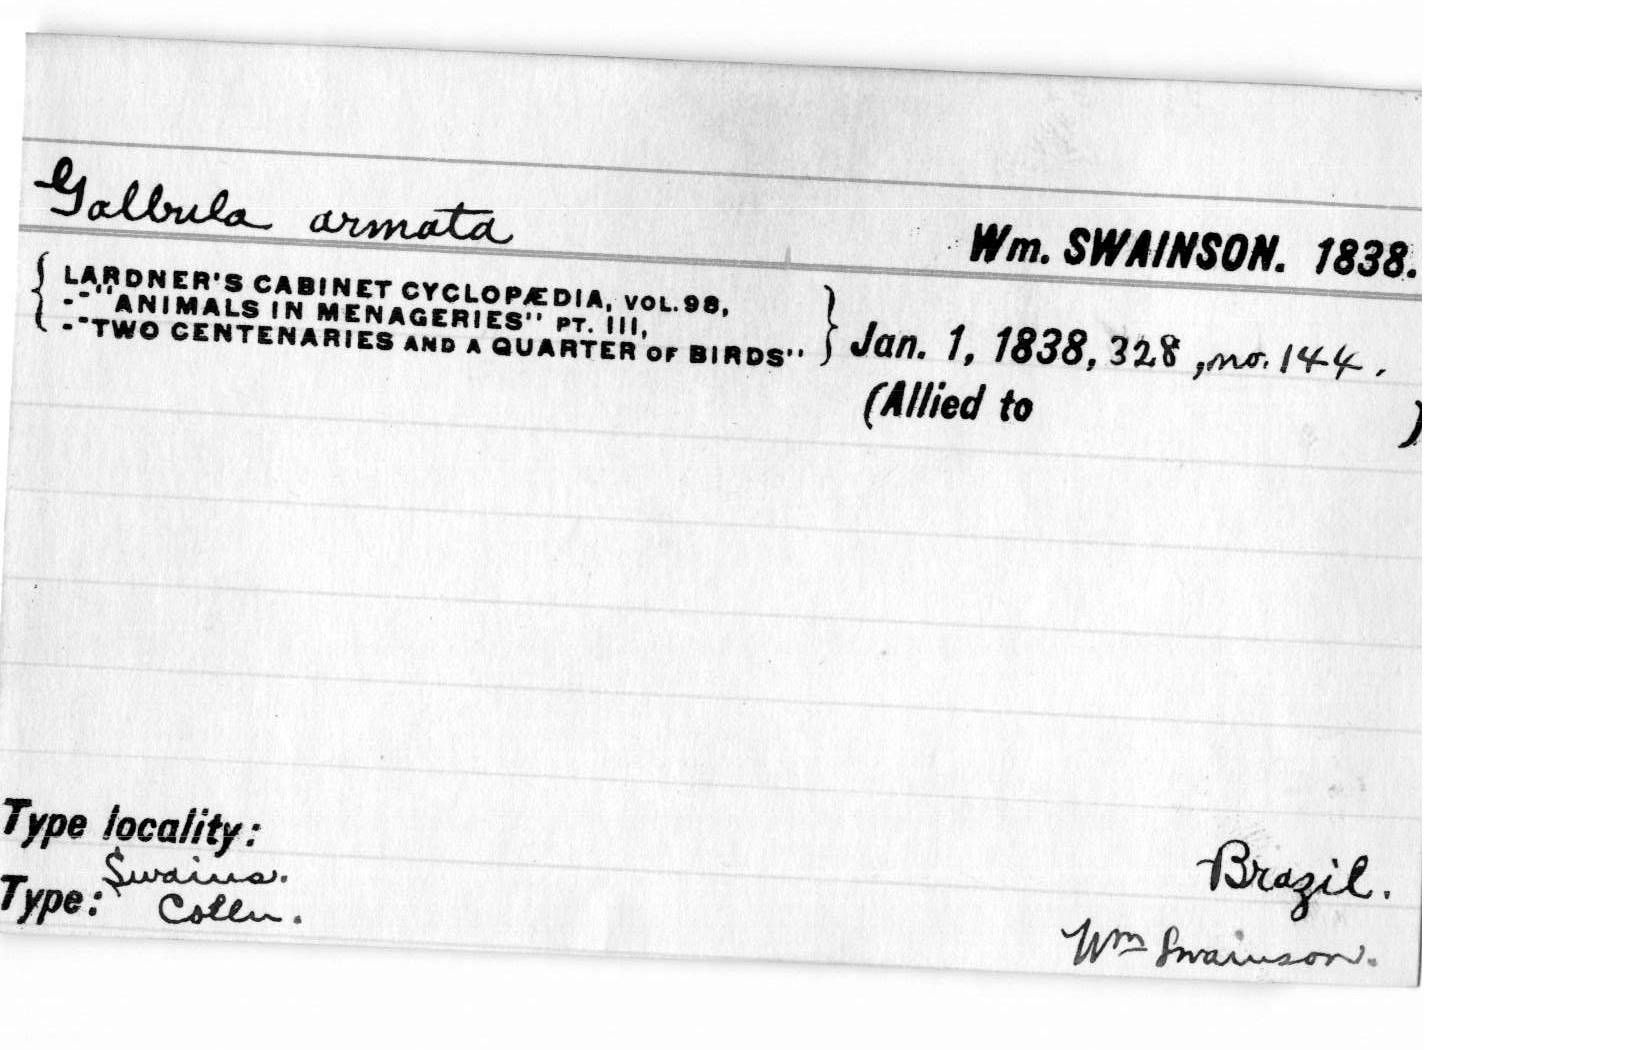 Galbula armata
Wm. SWAINSON. 1838.
LARDNER'S CABINET CYCLOPÆDIA, VOL. 98,
--"ANIMALS IN MENAGERIES" PT. III,
--"TWO CENTENARIES AND A QUARTER OF BIRDS"
Jan. 1, 1838, 328, no. 144.
(Allied to )
Type locality:
Brazil.
Type: Swains. Colln.
Wm Swainson.